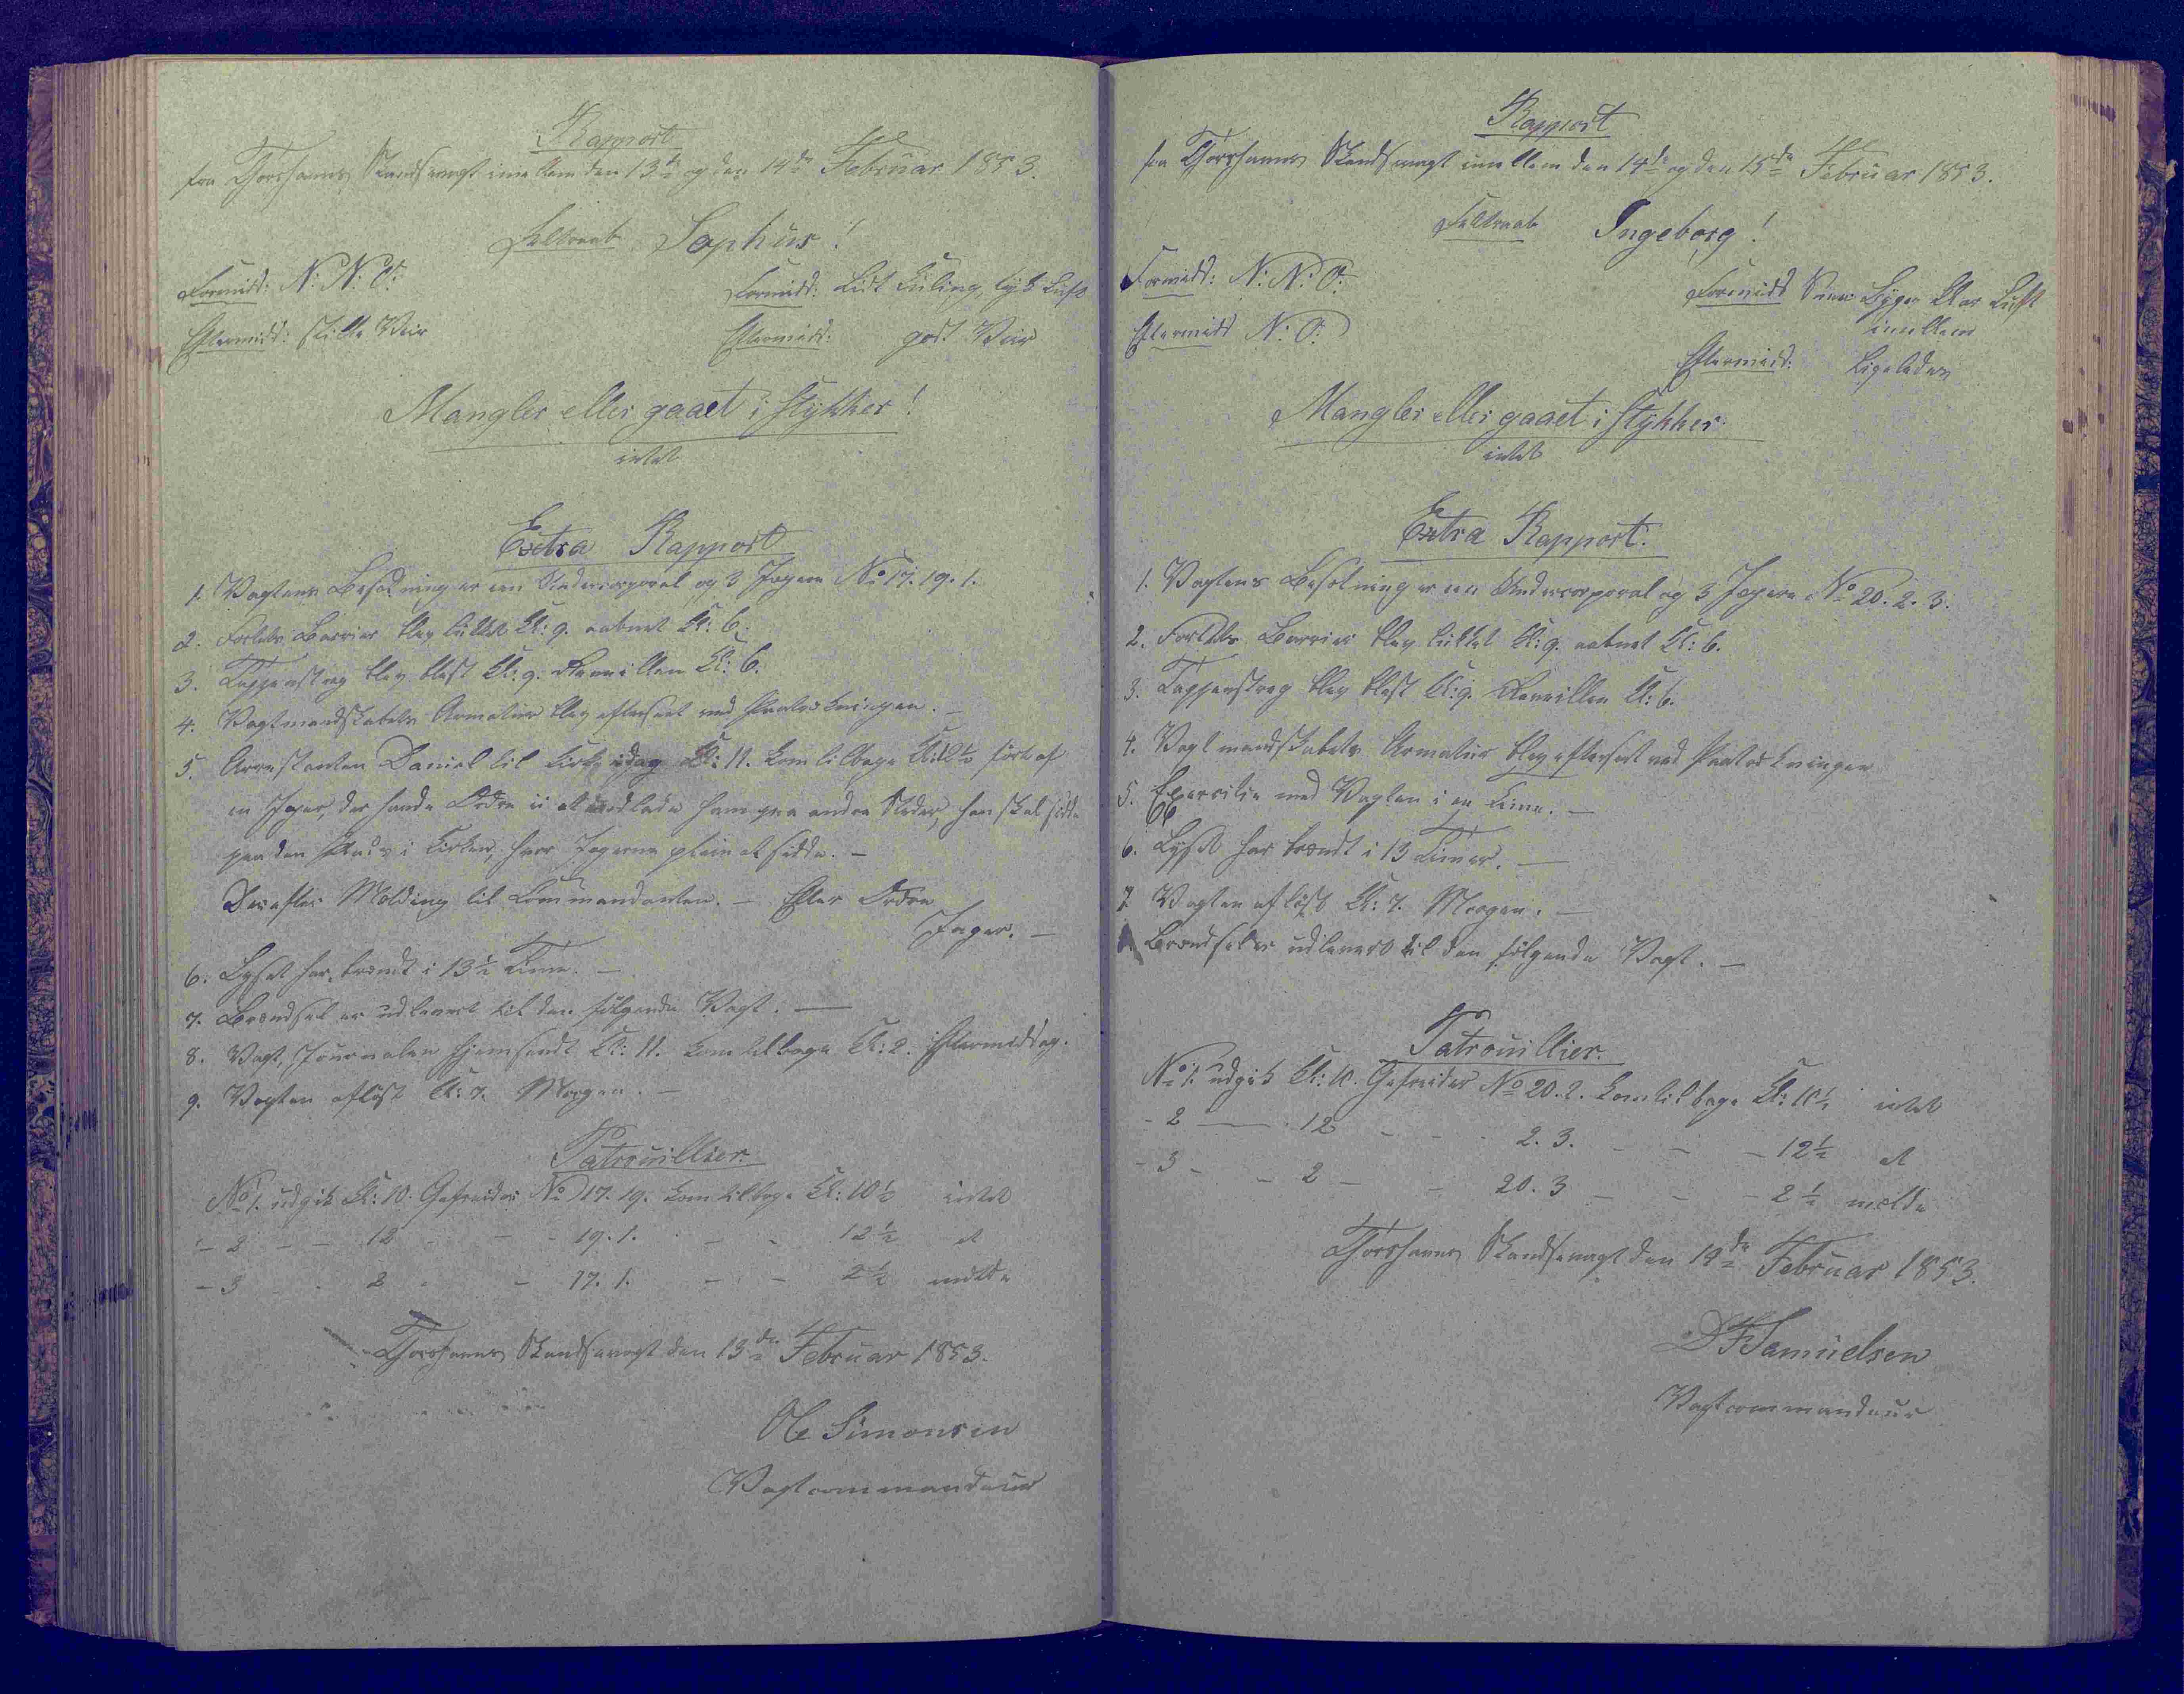 Rapport
fra Thorshavns Skandsevagt imellem den 13de og den 14de Februar 1853.
Feltraab Sophus!
Formidd: N: N: O: Formidd: Lidt Kuling, tyk Luft
Eftermidd: stille Veir Eftermidd: godt Veir
Mangler eller gaaet i Stykker!
intet
Extra Rapport
1. Vagtens Besætning er een Undercorporal og 3 Jægere No 17. 19. 1.
2. Fortets Barrier blev lukket Kl: 9. aabnet Kl: 6.
3. Tappenstreg blev blæst Kl: 9. Reveillen Kl: 6.
4. Vagtmandskabets Armatur blev efterseet ved Paatrækningen. —
5. Arrestanten Daniel til Kirke idag Kl: 11. kom tilbage Kl: 12½ført af
en Jæger, der havde Ordre ii at lade ham gaa andre Steder, han skal sidde
paa den Plads i Kirken, hvor Jægerne pleie at sidde. —
Derefter Melding til Commandanten. — Efter Ordre
Jæger. —
6. Lyset har brændt i 13½ Time. —
7. Brændsel er udleveret til den følgende Vagt. —
8. Vagt Journalen hjemsendt Kl: 11. kom tilbage Kl: 2. Eftermiddag.
9. Vagten afløst Kl: 7. Morgen. —
Patrouillier.
No 1. udgik Kl: 10. Gefreider No 17. 19. kom tilbage Kl: 10½ intet
- 2 - - 12 - - - 19. 1. - - 12½ at
- 3 - 2 - - 17. 1. - - 2½ melde
Thorshavns Skandsevagt den 13de Februar 1853.
Ole Simonsen
Vagtcommandeur
Rapport
fra Thorshavns Skandsevagt imellem den 14de og den 15de Februar 1853.
Feltraab Ingeborg!
Formidd: N: N: O: Formidd Snee Byger klar Luft
imellem
Eftermidd N: O: Eftermidd: Ligeledes
Mangler eller gaaet i Stykker
intet
Extra Rapport.
1. Vagtens Besætning er een Undercorporal og 3 Jægere No 20. 2. 3.
2. Fortets Barrier blev lukket Kl: 9. aabnet Kl: 6.
3. Tappenstreg blev blæst Kl: 9. Reveillen Kl: 6.
4. Vagtmandskabets Armatur blev efterseet ved Paatrækningen
5. Exercitie med Vagten i en Time. —
6. Lyset har brændt i 13 Timer. —
7. Vagten afløst Kl: 7. Morgen. —
Brændsel er udleveret til den følgende Vagt. —
Patrouillier.
No 1. udgik Kl: 10. Gefreider No 20. 2. kom tilbage Kl: 10½ intet
- 2 — 12 - - - 2. 3. - - - 12½ at
- 3 - - 2 - - 20. 3 - - - 2½ melde
Thorshavns Skandsevagt den 14de Februar 1853.
D F Samuelsen
Vagtcommandeur